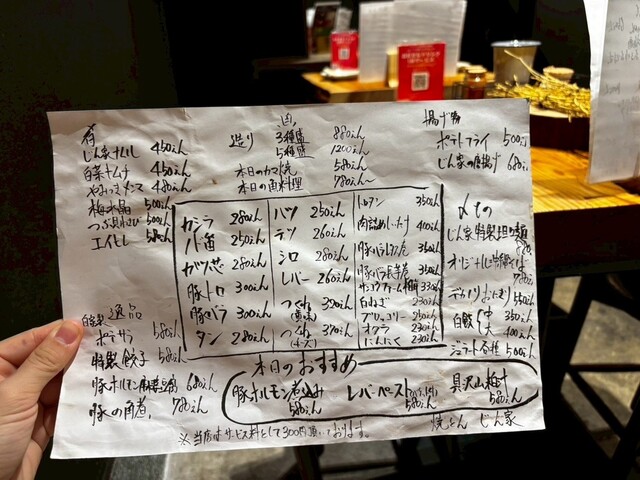 じん家ナムル 450えん
白菜キムチ 450えん
やみつきメンマ 480えん
梅水晶 500えん
つぶ貝わさび 500えん
エイヒレ 580えん
造り
3種盛 880えん
5種盛 1200えん
本日のカマ焼 580えん
本日の魚料理 780えん〜
揚げ物
ポテトフライ 500えん
じん家の唐揚げ 680えん
カシラ 280えん
ハツ 250えん
トマト 350えん
ハラミ 250えん
テツ 260えん
肉詰めしいたけ 400えん
ガツ芯 280えん
シロ 280えん
豚バラレタス巻 350えん
豚トロ 300えん
レバー 260えん
豚バラ長芋巻 350えん
豚バラ 300えん
つくね 320えん
白ねぎ 230えん
タン 280えん
つくね (チーズ) 370えん
ブロッコリー 250えん
オクラ 230えん
にんにく 230えん
〆もの
じん家特製担々麺 880えん
デカ盛りおにぎり 550えん
白飯 中 350えん
大 400えん
ジェラート各種 500えん
逸品
自家製ポテサラ 580えん
特製餃子 580えん
豚ホルモン麻婆豆腐 680えん
豚の角煮 780えん
本日のおすすめ
豚ホルモン煮込み 580えん
レバーペースト 580えん
具沢山豚汁 580えん
※当店はサービス料として300円頂いております。
焼とん じん家